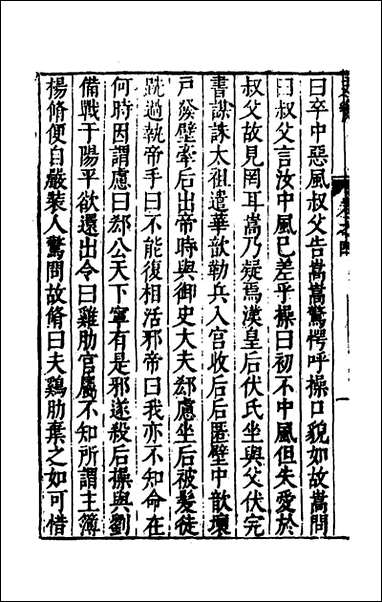 曰卒中惡風叔父告嵩嵩驚愕呼操口貌如故嵩問
曰叔父言汝中風巳差乎操曰初不中風但失愛於
叔父故見罔耳嵩乃疑焉漢皇后伏氏坐與父伏完
書謀誅太祖遣華歆勒兵入宫收后后匿壁中歆壞
戸發壁牽后出帝時與御史大夫郄慮坐后被髮徒
跣過執帝手曰不能復相活邪帝曰我亦不知命在
何時因謂慮曰郄公天下寧有是邪遂殺后操與劉
備戰于陽平欲還出令曰雞肋官屬不知所謂主簿
楊脩便自嚴裝人驚問故脩曰夫鷄肋棄之如可惜